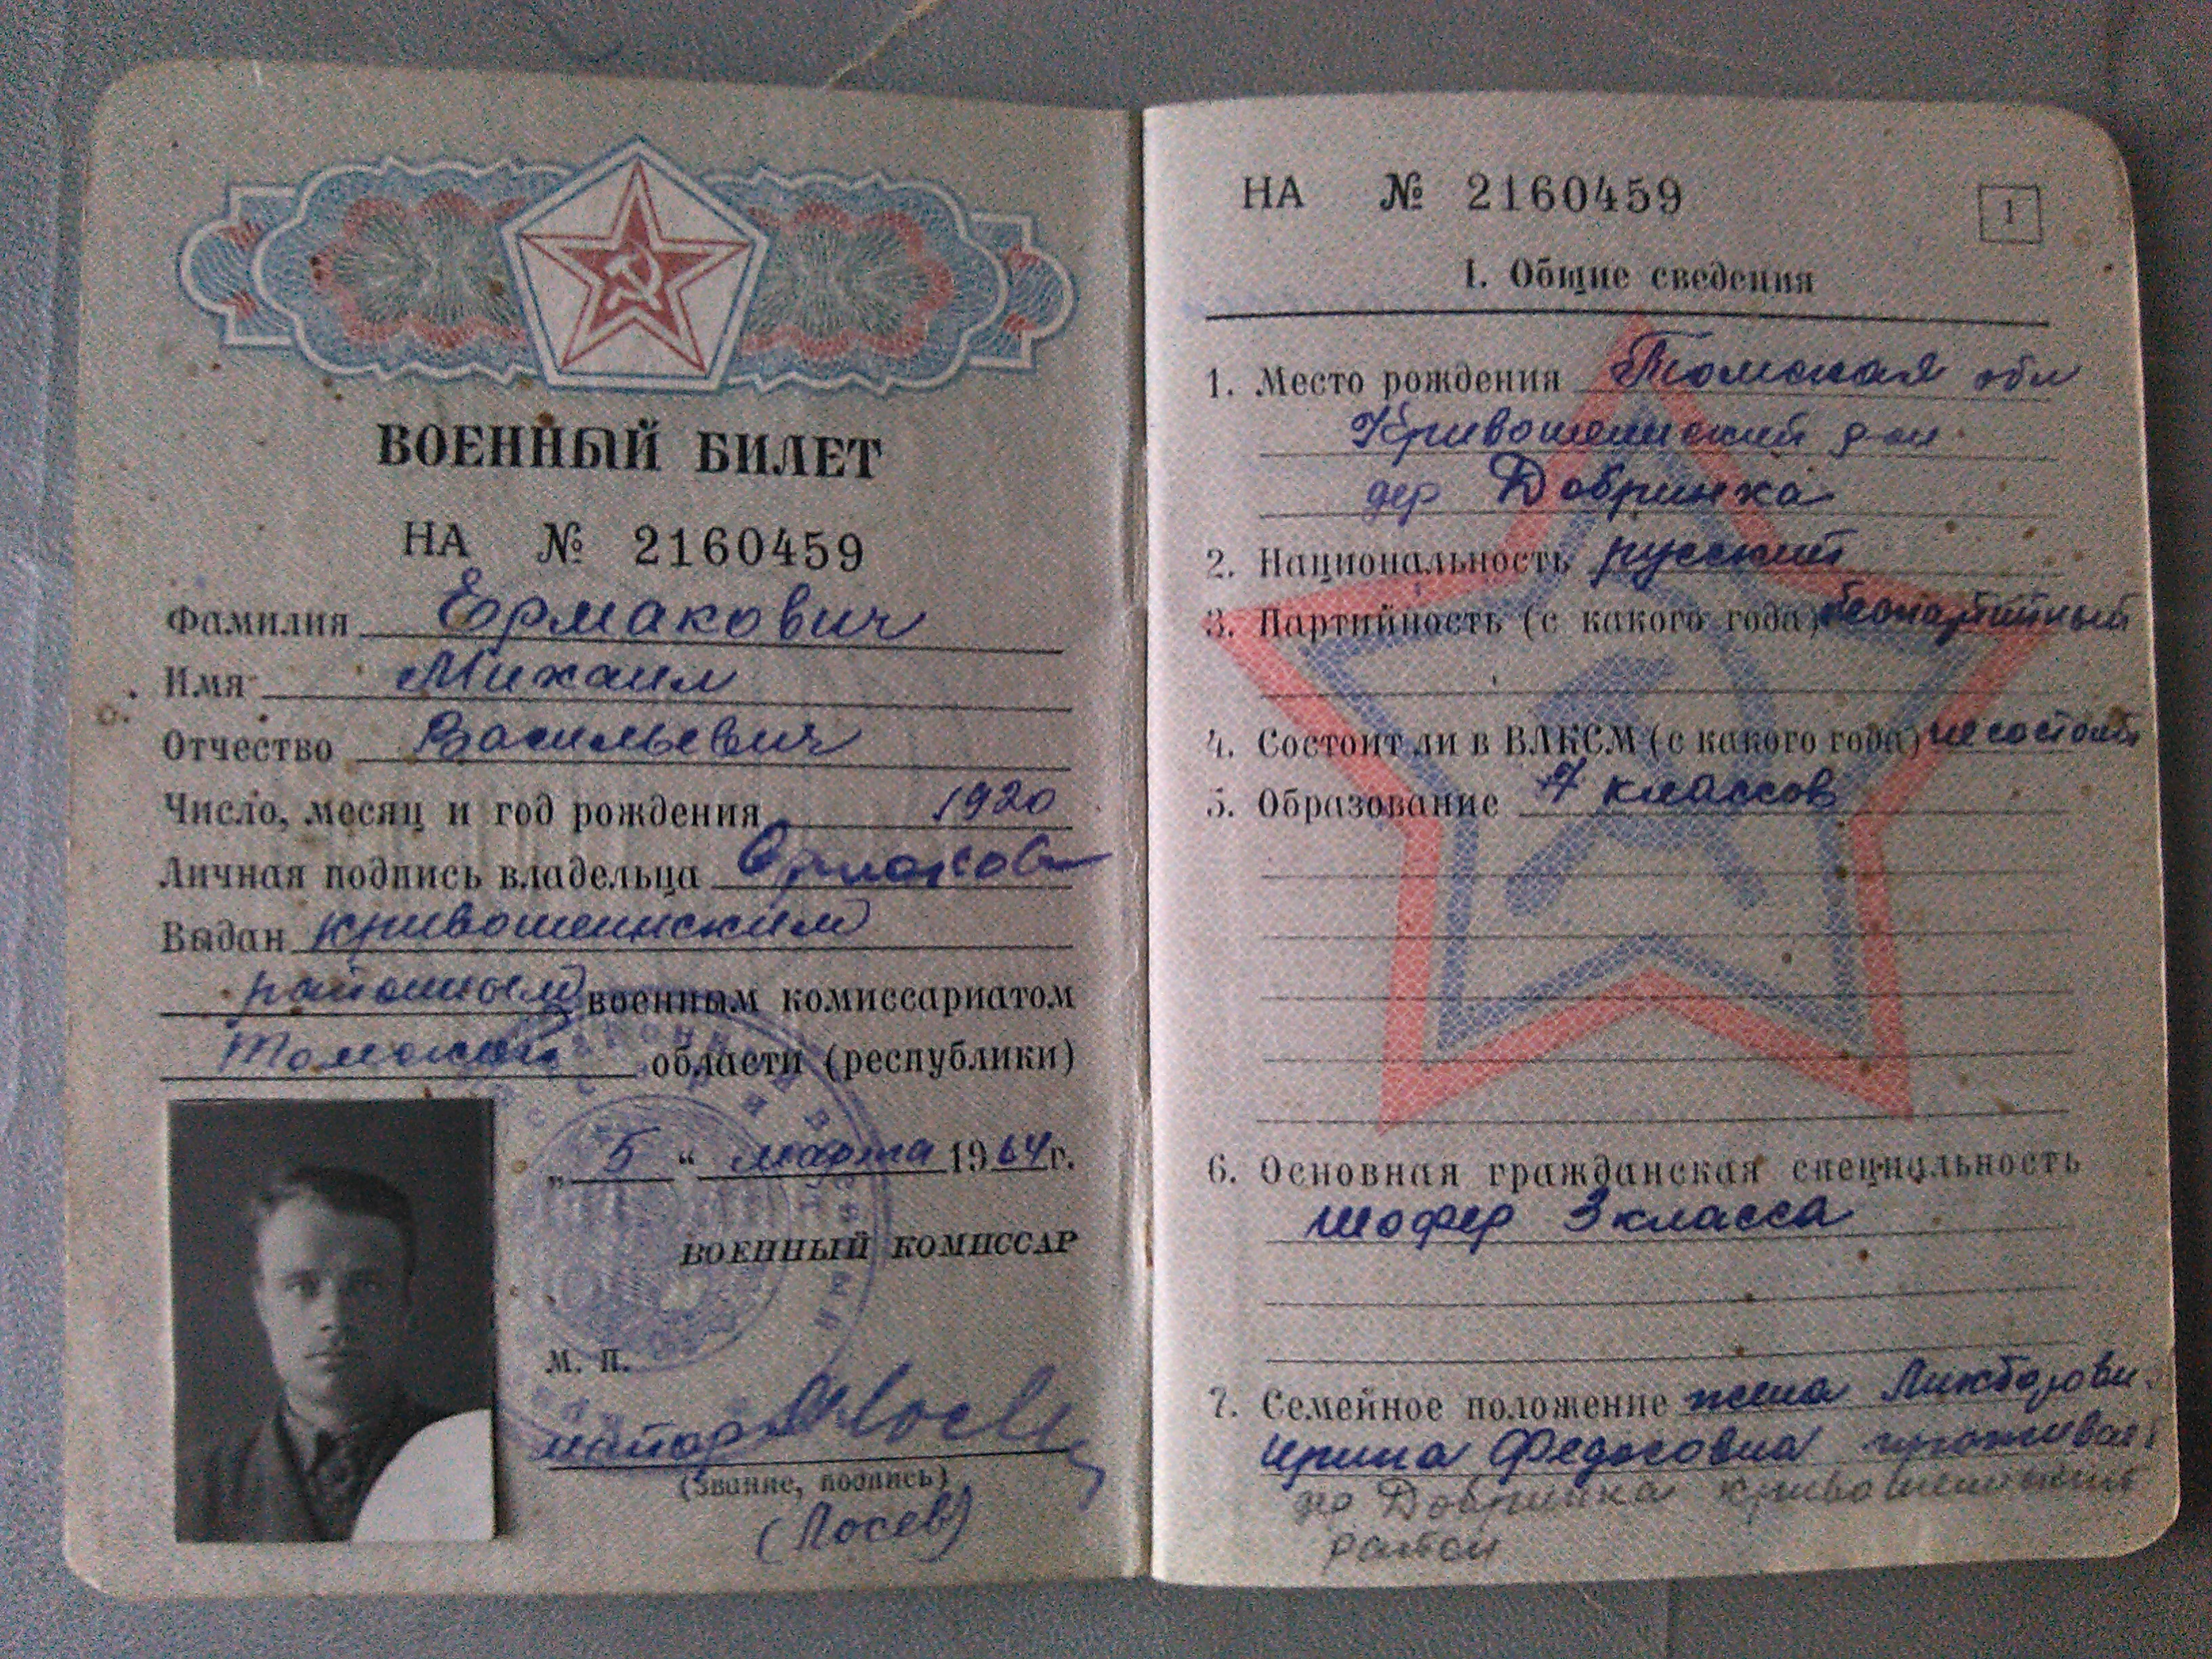 ВОЕННЫЙ БИЛЕТ
НА № 2160459
Фамилия Ермакович
Имя Михаил
Отчество Васильевич
Число, месяц и год рождения 1920
Личная подпись владельца Ермаков
Выдан Кривошеинским
районным военным комиссариатом
Томской области (республики)
„5“ марта 1964 г.
ВОЕННЫЙ КОМИССАР
М. П.
майор Лосев
(звание, подпись)
(Лосев)
НА № 2160459
1
I. Общие сведения
1. Место рождения Томская обл
Кривошеинский р-он
дер Добринка
2. Национальность русский
3. Партийность (с какого года) беспартийный
4. Состоит ли в ВЛКСМ (с какого года) не состоит
5. Образование 7 классов
6. Основная гражданская специальность
шофер 3 класса
7. Семейное положение жена
Ирина Федосовна проживает
дер Добринка Кривошеинский
район